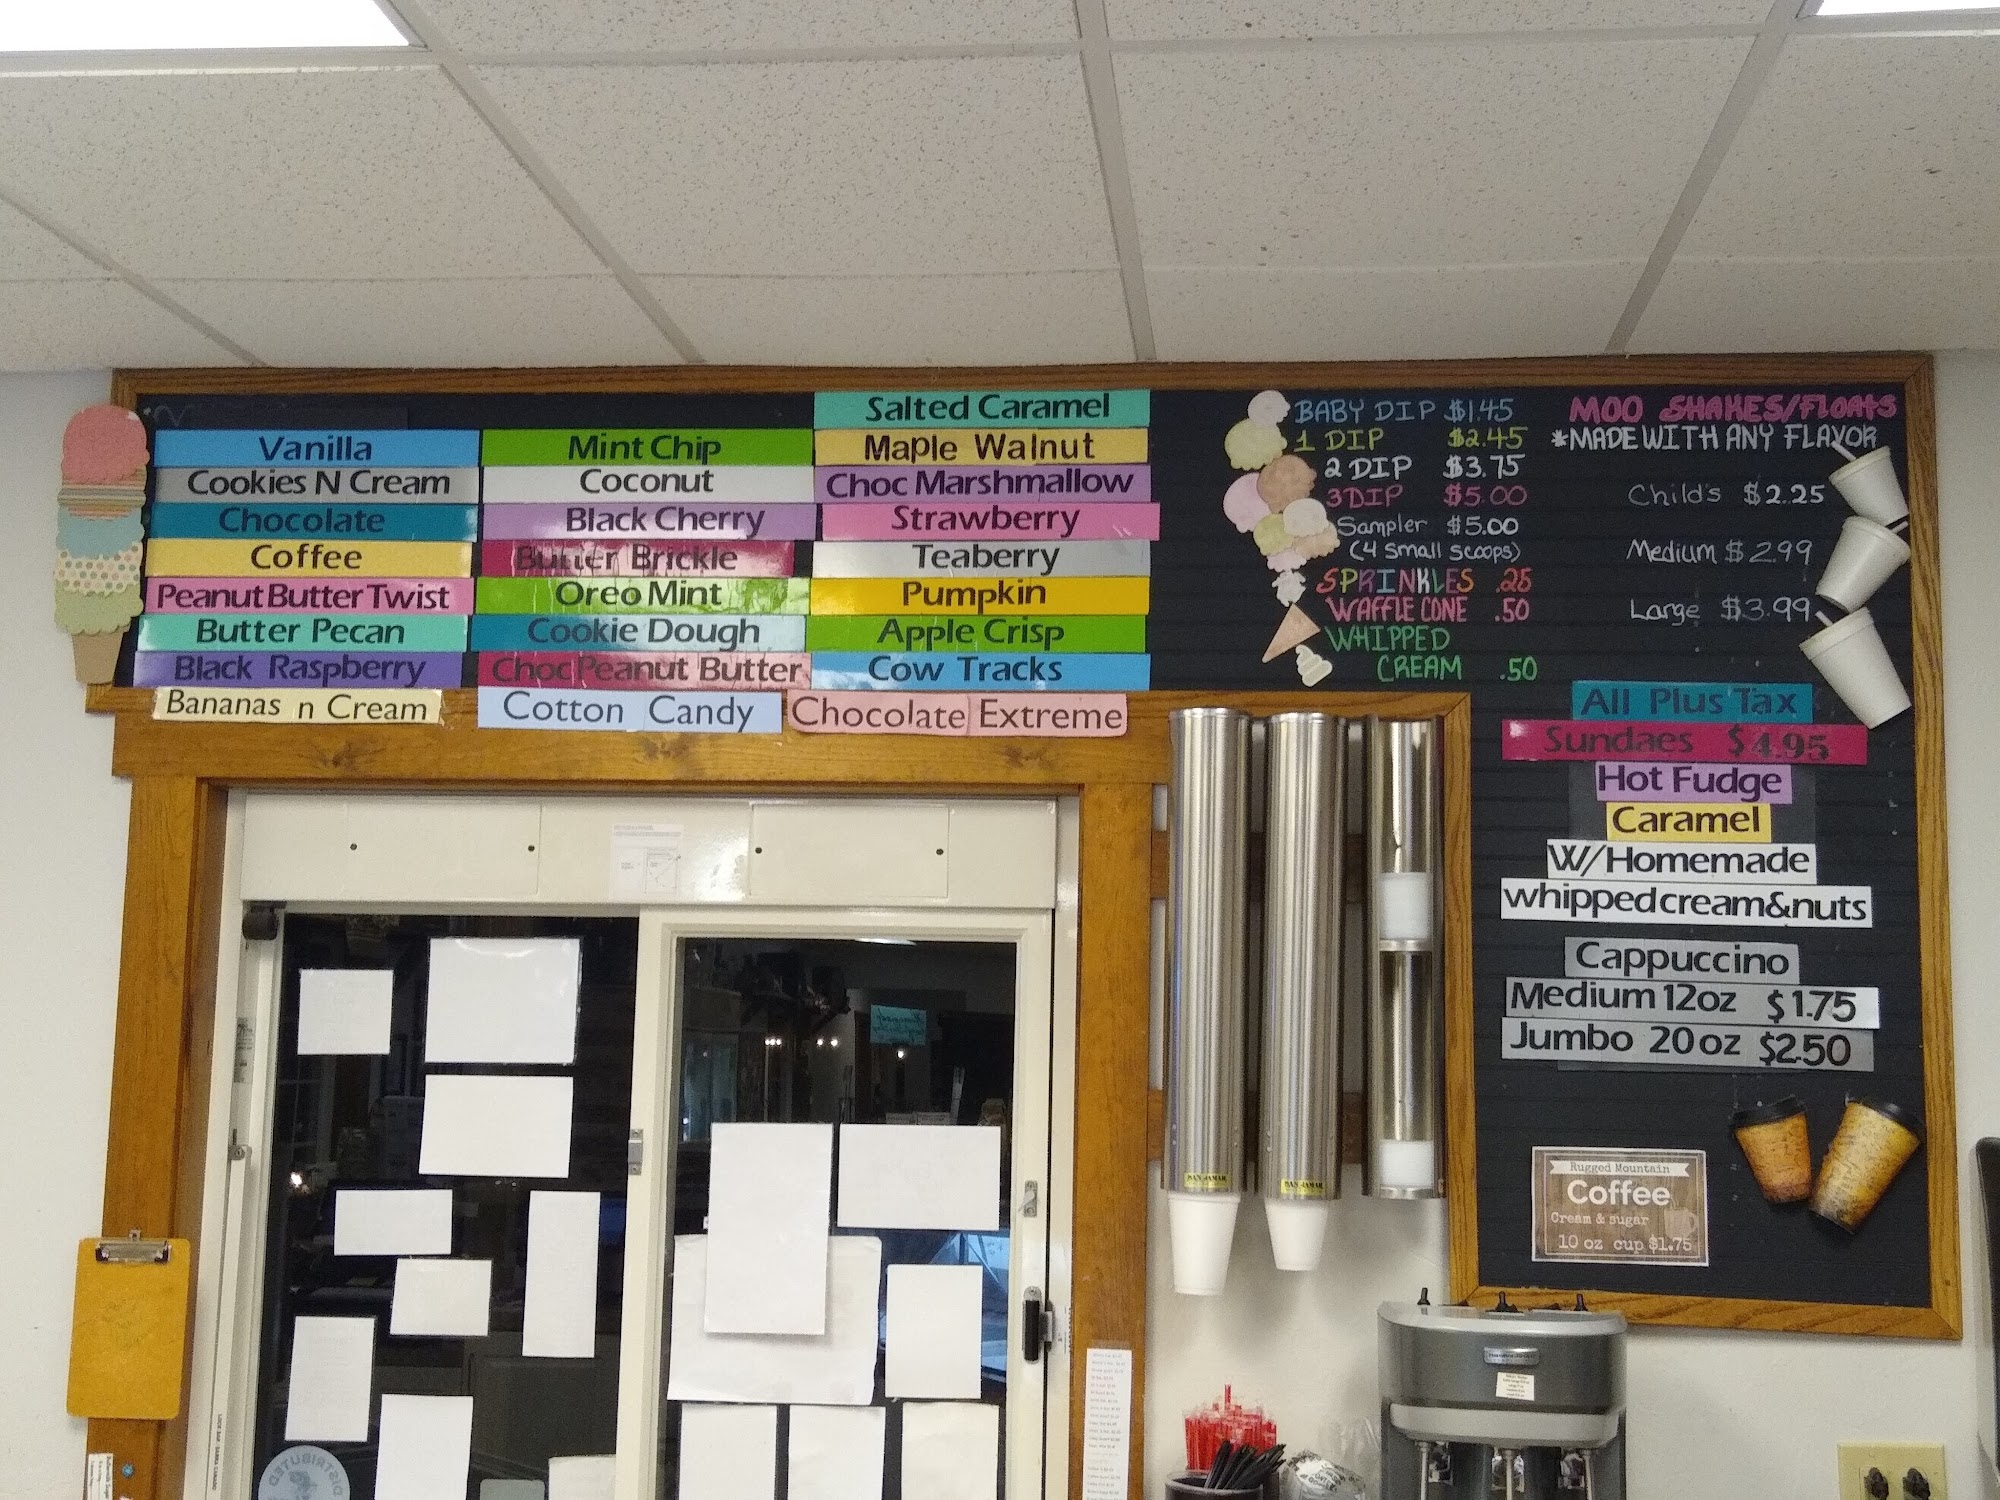 Vanilla
Cookies N Cream
Chocolate
Coffee
Peanut Butter Twist
Butter Pecan
Black Raspberry
Bananas n Cream
Mint Chip
Coconut
Black Cherry
Butter Brickle
Oreo Mint
Cookie Dough
Choc Peanut Butter
Cotton Candy
Salted Caramel
Maple Walnut
Choc Marshmallow
Strawberry
Teaberry
Pumpkin
Apple Crisp
Cow Tracks
Chocolate Extreme
BABY DIP $1.45
1 DIP $2.45
2 DIP $3.75
3 DIP $5.00
Sampler $5.00
(4 small scoops)
SPRINKLES .25
WAFFLE CONE .50
WHIPPED
CREAM .50
MOO SHAKES/FLOATS
*MADE WITH ANY FLAVOR
Child's $2.25
Medium $2.99
Large $3.99
All Plus Tax
Sundaes $4.95
Hot Fudge
Caramel
W/Homemade
whipped cream&nuts
Cappuccino
Medium 12oz $1.75
Jumbo 20 oz $2.50
Rugged Mountain
Coffee
Cream & sugar
10 oz cup $1.75
SAN JAMAR
SAN JAMAR
DISTRIBUTED